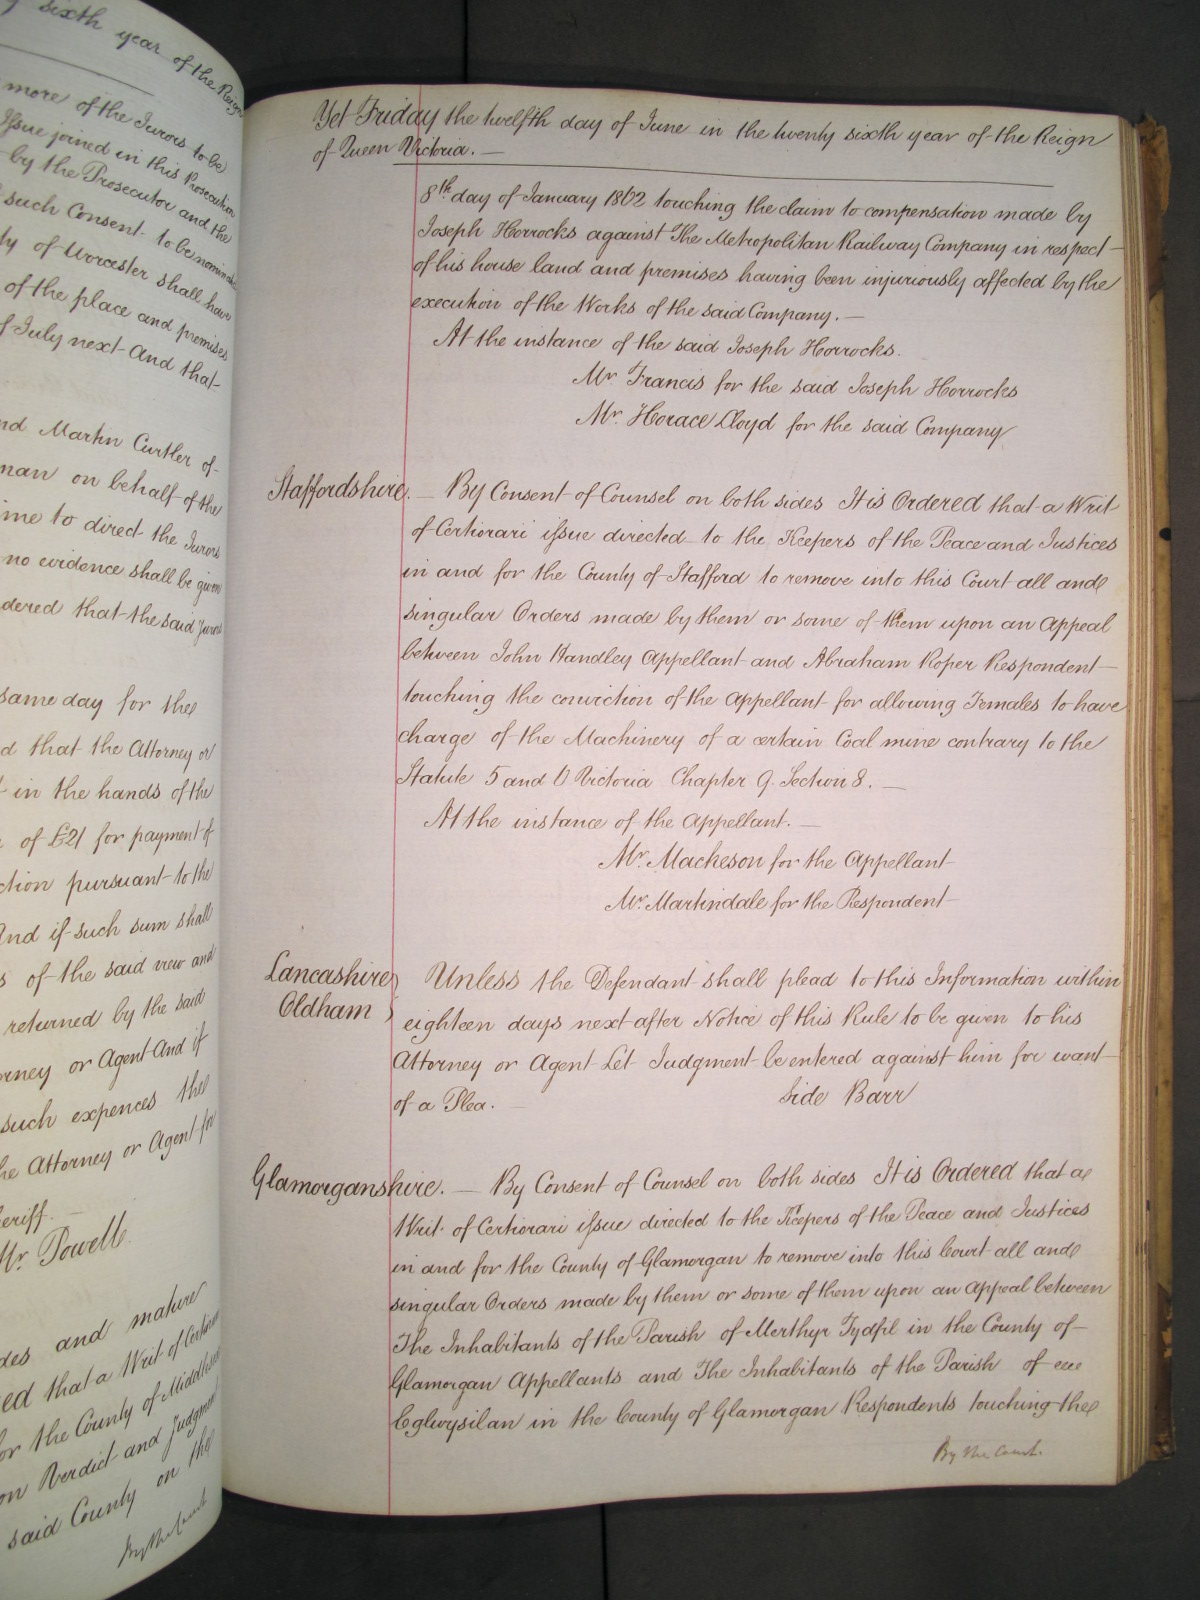 sixth year of the Reign
more of the Jurors to be
Issue joined in this Prosecution
by the Prosecutor and the
such Consent to be
of Worcester shall have
of the place and premises
July next And that
Martin Curtler of
on behalf of the
to direct the Jurors
no evidence shall be given
that the said Jurors
same day for the
that the Attorney or
in the hands of the
of £21 for payment of
pursuant to the
And if such sum shall
of the said view and
returned by the said
or Agent And if
such expences the
Attorney or Agent for
Mr. Powell
and mature
that a Writ of Certiorari
the County of Middlesex
Verdict and Judgment
said County on the
By the Court
Yet Friday the twelfth day of June in the twenty sixth year of the Reign
of Queen Victoria. —
8th day of January 1862 touching the claim to compensation made by
Joseph Horrocks against The Metropolitan Railway Company in respect
of his house land and premises having been injuriously affected by the
execution of the Works of the said Company. —
At the instance of the said Joseph Horrocks.
Mr Francis for the said Joseph Horrocks
Mr. Horace Lloyd for the said Company
Staffordshire. — By Consent of Counsel on both sides It is Ordered that a Writ
of Certiorari issue directed to the Keepers of the Peace and Justices
in and for the County of Stafford to remove into this Court all and
singular Orders made by them or some of them upon an Appeal
between John Handley Appellant and Abraham Roper Respondent
touching the conviction of the Appellant for allowing Females to have
charge of the Machinery of a certain Coal mine contrary to the
Statute 5 and 6 Victoria Chapter 9. Section 8. —
At the instance of the Appellant. —
Mr. Mackeson for the Appellant
Mr. Martindale for the Respondent
Lancashire Unless the Defendant shall plead to this Information within
Oldham eighteen days next after Notice of this Rule to be given to his
Attorney or Agent Let Judgment be entered against him for want
of a Plea. — Side Barr
Glamorganshire. — By Consent of Counsel on both sides It is Ordered that a
Writ of Certiorari issue directed to the Keepers of the Peace and Justices
in and for the County of Glamorgan to remove into this Court all and
singular Orders made by them or some of them upon an Appeal between
The Inhabitants of the Parish of Merthyr Tydfil in the County of
Glamorgan Appellants and The Inhabitants of the Parish of
Eglwysilan in the County of Glamorgan Respondents touching the
By the Court.